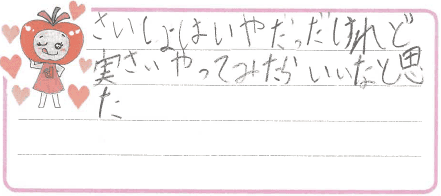 さいしょはいやだっだけれど
実さいやってみたらいいなと思
た